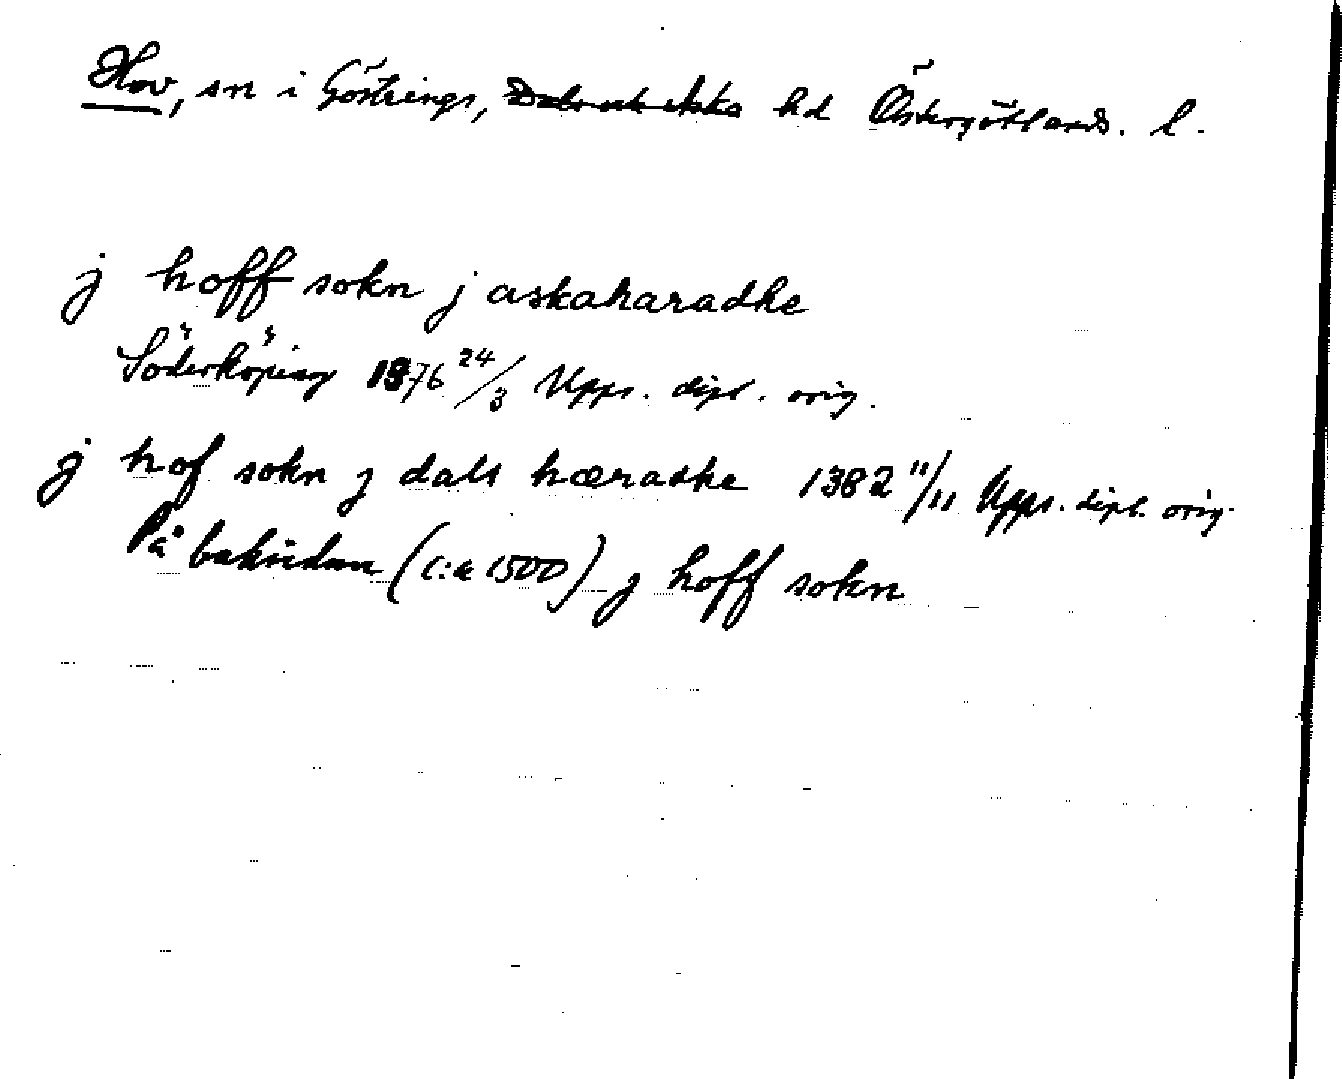 Hov, sn i Göstrings, Dals och Aska hd Östergötlands. l.
j hoff sokn j askaharadhe
Söderköping 1376 24/3 Upps. dipl. orig.
j hof sokn j dals hæradhe 1382 11/11 Upps. dipl. orig.
På baksidan (c:a 1500) j hoff sokn